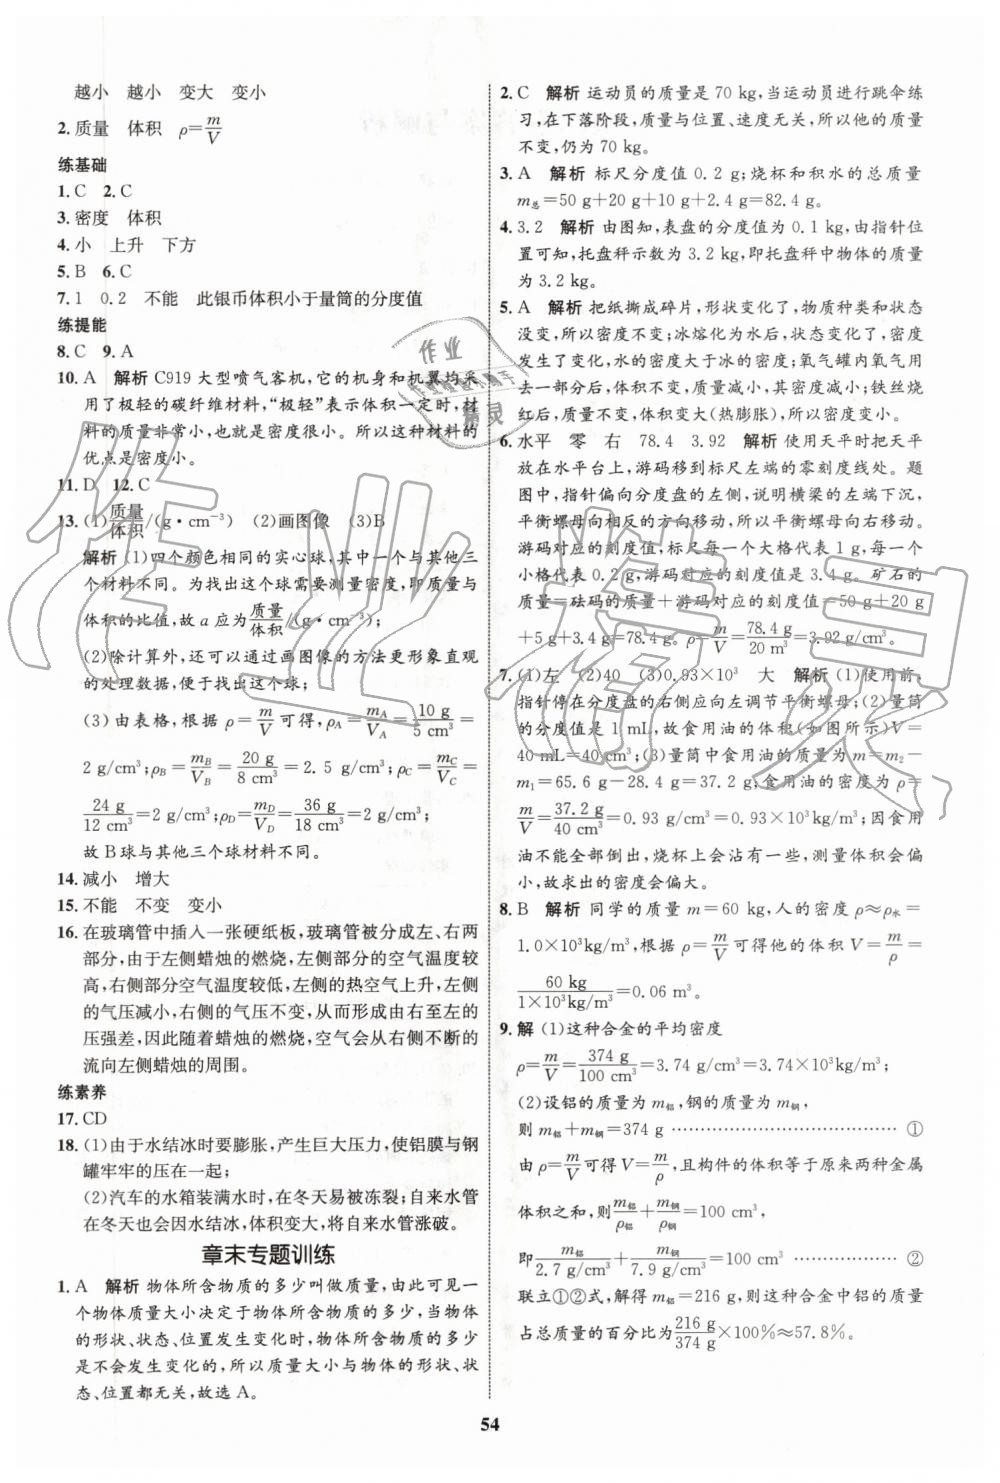 越小　越小　变大　变小
2.质量　体积　ρ=m/V
练基础
1.C　2.C
3.密度　体积
4.小　上升　下方
5.B　6.C
7.1　0.2　不能　此银币体积小于量筒的分度值
练提能
8.C　9.A
10.A　解析 C919大型喷气客机，它的机身和机翼均采
用了极轻的碳纤维材料，“极轻”表示体积一定时，材
料的质量非常小，也就是密度很小。所以这种材料的
优点是密度小。
11.D　12.C
13.(1)质量/体积/(g·cm⁻³)　(2)画图像　(3)B
解析 (1)四个颜色相同的实心球，其中一个与其他三
个材料不同。为找出这个球需要测量密度，即质量与
体积的比值，故a应为质量/体积/(g·cm⁻³)；
(2)除计算外，还可以通过画图像的方法更形象直观
的处理数据，便于找出这个球；
(3)由表格，根据ρ=m/V可得，ρA=mA/VA=10 g/5 cm³=
2 g/cm³；ρB=mB/VB=20 g/8 cm³=2.5 g/cm³；ρC=mC/VC=
24 g/12 cm³=2 g/cm³；ρD=mD/VD=36 g/18 cm³=2 g/cm³；
故B球与其他三个球材料不同。
14.减小　增大
15.不能　不变　变小
16.在玻璃管中插入一张硬纸板，玻璃管被分成左、右两
部分，由于左侧蜡烛的燃烧，左侧部分的空气温度较
高，右侧部分空气温度较低，左侧的热空气上升，左侧
的气压减小，右侧的气压不变，从而形成由右至左的
压强差，因此随着蜡烛的燃烧，空气会从右侧不断的
流向左侧蜡烛的周围。
练素养
17.CD
18.(1)由于水结冰时要膨胀，产生巨大压力，使铝膜与钢
罐牢牢的压在一起；
(2)汽车的水箱装满水时，在冬天易被冻裂；自来水管
在冬天也会因水结冰，体积变大，将自来水管涨破。
章末专题训练
1.A　解析 物体所含物质的多少叫做质量，由此可见一
个物体质量大小决定于物体所含物质的多少，当物体
的形状、状态、位置发生变化时，物体所含物质的多少
是不会发生变化的，所以质量大小与物体的形状、状
态、位置都无关，故选A。
2.C　解析 运动员的质量是70 kg，当运动员进行跳伞练
习，在下落阶段，质量与位置、速度无关，所以他的质量
不变，仍为70 kg。
3.A　解析 标尺分度值0.2 g；烧杯和积水的总质量
m总=50 g+20 g+10 g+2.4 g=82.4 g。
4.3.2　解析 由图知，表盘的分度值为0.1 kg，由指针位
置可知，托盘秤示数为3.2 kg，即托盘秤中物体的质量为
3.2 kg。
5.A　解析 把纸撕成碎片，形状变化了，物质种类和状态
没变，所以密度不变；冰熔化为水后，状态变化了，密度
发生了变化，水的密度大于冰的密度；氧气罐内氧气用
去一部分后，体积不变，质量减小，其密度减小；铁丝烧
红后，质量不变，体积变大(热膨胀)，所以密度变小。
6.水平　零　右　78.4　3.92　解析 使用天平时把天平
放在水平台上，游码移到标尺左端的零刻度线处。题
图中，指针偏向分度盘的左侧，说明横梁的左端下沉，
平衡螺母向相反的方向移动，所以平衡螺母向右移动。
游码对应的刻度值，标尺上每一个大格代表1 g，每一个
小格代表0.2 g，游码对应的刻度值是3.4 g。矿石的
质量=砝码的质量+游码对应的刻度值=50 g+20 g
+5 g+3.4 g=78.4 g。ρ=m/V=78.4 g/20 m³=3.92 g/cm³。
7.(1)左　(2)40　(3)0.93×10³　大　解析 (1)使用前，
指针停在分度盘的右侧应向左调节平衡螺母；(2)量筒
的分度值是1 mL，故食用油的体积(如图所示)V=
40 mL=40 cm³；(3)量筒中食用油的质量为m=m₂-
m₁=65.6 g-28.4 g=37.2 g，食用油的密度为ρ=
m/V=37.2 g/40 cm³=0.93 g/cm³=0.93×10³ kg/m³；因食用
油不能全部倒出，烧杯上会沾有一些，测量体积会偏
小，故求出的密度会偏大。
8.B　解析 同学的质量m=60 kg，人的密度ρ≈ρ水=
1.0×10³kg/m³，根据ρ=m/V可得他的体积V=m/ρ=
60 kg/1×10³kg/m³=0.06 m³。
9.解 (1)这种合金的平均密度
ρ=m/V=374 g/100 cm³=3.74 g/cm³=3.74×10³kg/m³；
(2)设铝的质量为m铝，钢的质量为m钢，
则m铝+m钢=374 g ………………………… ①
由ρ=m/V可得V=m/ρ，且构件的体积等于原来两种金属
体积之和，则m铝/ρ铝+m钢/ρ钢=100 cm³，
即m铝/2.7 g/cm³+m钢/7.9 g/cm³=100 cm³ ………… ②
联立①②式，解得m铝=216 g，则这种合金中铝的质量
占总质量的百分比为216 g/374 g×100%≈57.8%。
54
作业
精灵
作业精灵